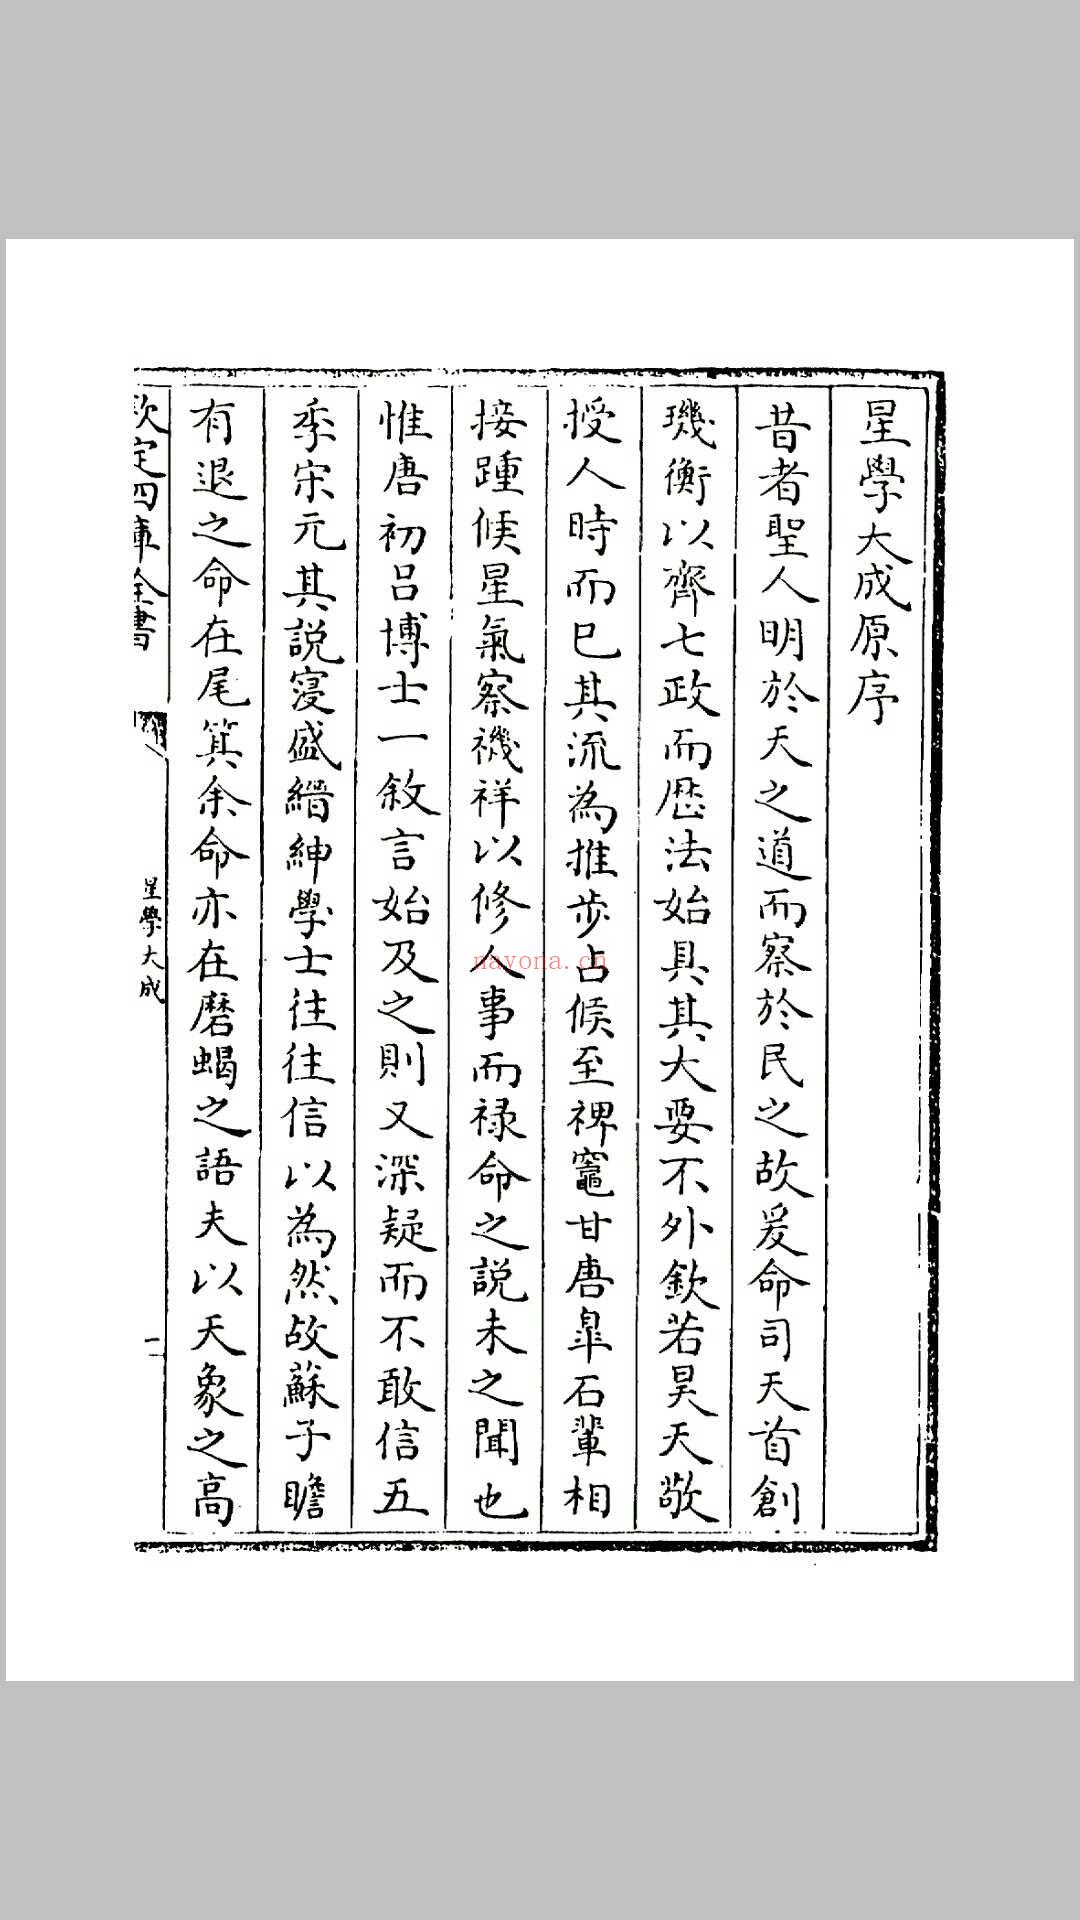 星學大成原序
昔者聖人明於天之道而察於民之故爰命司天首創
璣衡以齊七政而歴法始具其大要不外欽若昊天敬
授人時而已其流為推步占候至禆竈甘唐臯石輩相
接踵候星氣察禨祥以修人事而禄命之説未之聞也
惟唐初呂博士一敘言始及之則又深疑而不敢信五
季宋元其説寖盛縉紳學士往往信以為然故蘇子瞻
有退之命在尾箕余命亦在磨蝎之語夫以天象之高
欽定四庫全書
星學大成
一
nayona.cn